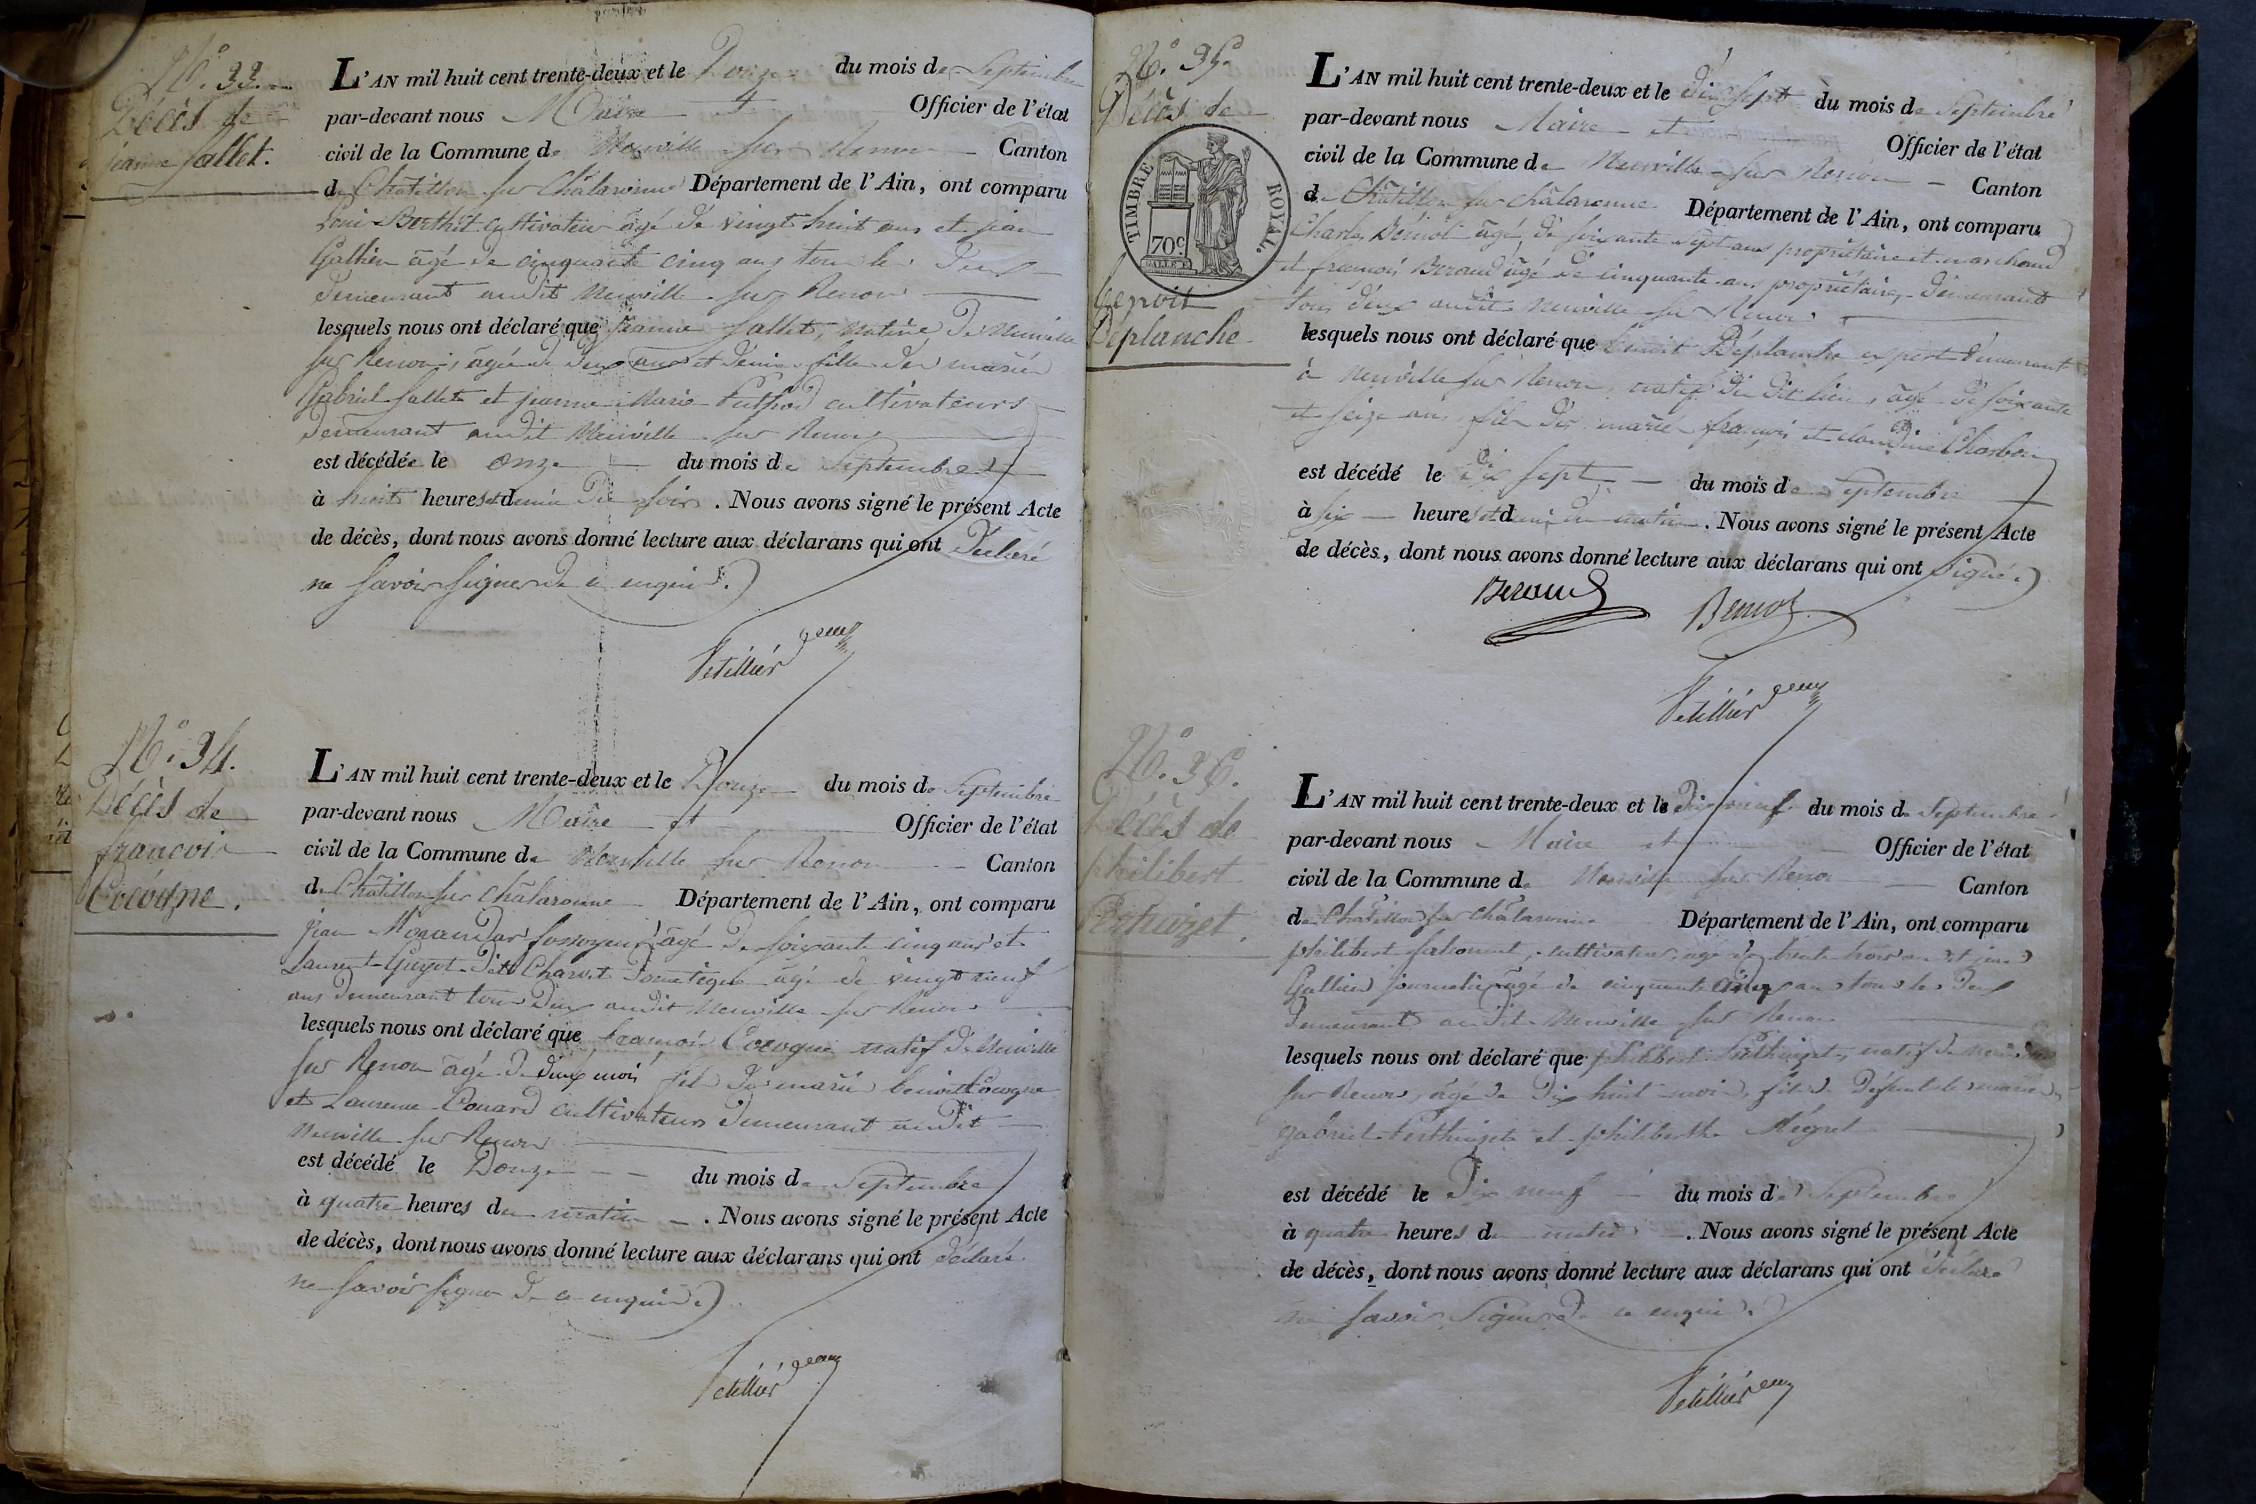 N.° 33.
Décès de
jeanne fallet.
L'AN mil huit cent trente-deux et le Douze du mois de Septembre
par-devant nous Maire et Officier de l'état
civil de la Commune de Neuville sur Renon Canton
de Châtillon sur Châlaronne Département de l'Ain, ont comparu
Loui Berthet cultivateur âgé de vingt huit ans et jean
Gallien âgé de cinquante cinq ans tou les Deux
demeurant audit Neuville sur Renon
lesquels nous ont déclaré que jeanne fallet, native De Neuville
sur Renon, âgée de deux ans et demie fille des mariés
Gabriel fallet et jeanne Marie cultivateurs
demeurant audit Neuville sur Renon
est décédée le onze du mois de Septembre
à huit heures et demie Du soir. Nous avons signé le présent Acte
de décès, dont nous avons donné lecture aux déclarans qui ont Déclaré
ne savoir signer de ce enquis.
Petillier
N.° 34.
Décès de
francois
Cocogne.
L'AN mil huit cent trente-deux et le Douze du mois de Septembre
par-devant nous Maire et Officier de l'état
civil de la Commune de Neuville sur Renon Canton
de Châtillon sur Châlaronne Département de l'Ain, ont comparu
jean fossoyeur âgé de soixante cinq ans et
Laurent Guyot dit Charvet Domestique âgé de vingt neuf
ans demeurant tous Deux audit Neuville sur Renon
lesquels nous ont déclaré que francois Cocogne natif de Neuville
sur Renon âgé de deux mois fils des mariés benoit Cocogne
et Laurence Bouard cultivateurs demeurant audit
Neuville sur Renon
est décédé le Douze du mois de Septembre
à quatre heures du matin. Nous avons signé le présent Acte
de décès, dont nous avons donné lecture aux déclarans qui ont déclaré
ne savoir signer de ce enquis.
Petillier
N.° 35.
Décès de
TIMBRE ROYAL.
70c
benoit
Deplanche
L'AN mil huit cent trente-deux et le dix sept du mois de Septembre
par-devant nous Maire et Officier de l'état
civil de la Commune de Neuville sur Renon Canton
de Châtillon sur Châlaronne Département de l'Ain, ont comparu
Charles Benoit âgé de soixante sept ans propriétaire et marchand
et francois Beraud âgé de cinquante ans propriétaire, demeurant
tous deux audit Neuville sur Renon
lesquels nous ont déclaré que benoit Deplanche expert demeurant
à Neuville sur Renon, natif du dit lieu, âgé de soixante
et seize ans, fils des mariés francois et claudine Charbon
est décédé le dix sept du mois de Septembre
à six heures et demie du matin. Nous avons signé le présent Acte
de décès, dont nous avons donné lecture aux déclarans qui ont signé.
Beraud
Benoit
Petillier
N.° 36.
Décès de
philibert
Perthuizet.
L'AN mil huit cent trente-deux et le Dix neuf du mois de Septembre
par-devant nous Maire et Officier de l'état
civil de la Commune de Neuville sur Renon Canton
de Châtillon sur Châlaronne Département de l'Ain, ont comparu
philibert cultivateur, âgé de trente trois ans et jean
Gallien journalier âgé de cinquante cinq ans tous les Deux
demeurant audit Neuville sur Renon
lesquels nous ont déclaré que philibert Perthuizet, natif de Neuville
sur Renon, âgé de Dix huit mois, fils de Défunt les mariés
gabriel Perthuizet et philiberthe Mégret
est décédé le Dix neuf du mois de Septembre
à quatre heures du matin. Nous avons signé le présent Acte
de décès, dont nous avons donné lecture aux déclarans qui ont déclaré
ne savoir signer de ce enquis.
Petillier